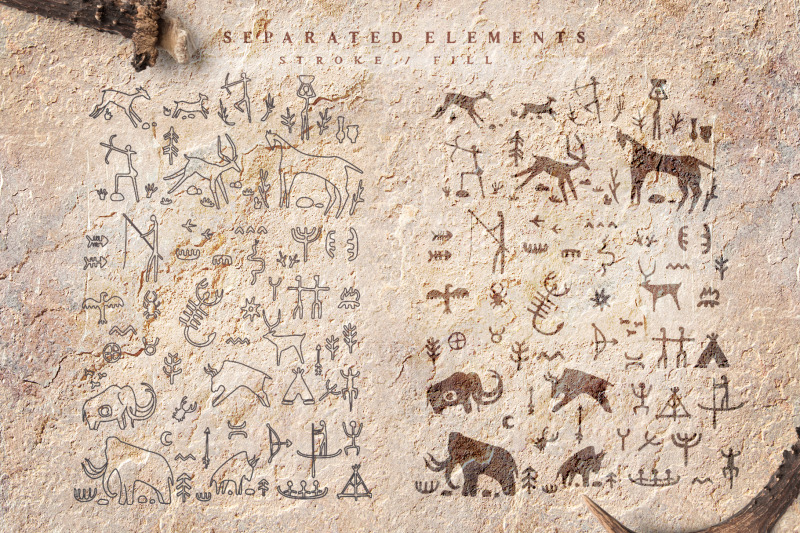 SEPARATED ELEMENTS
STROKE / FILL